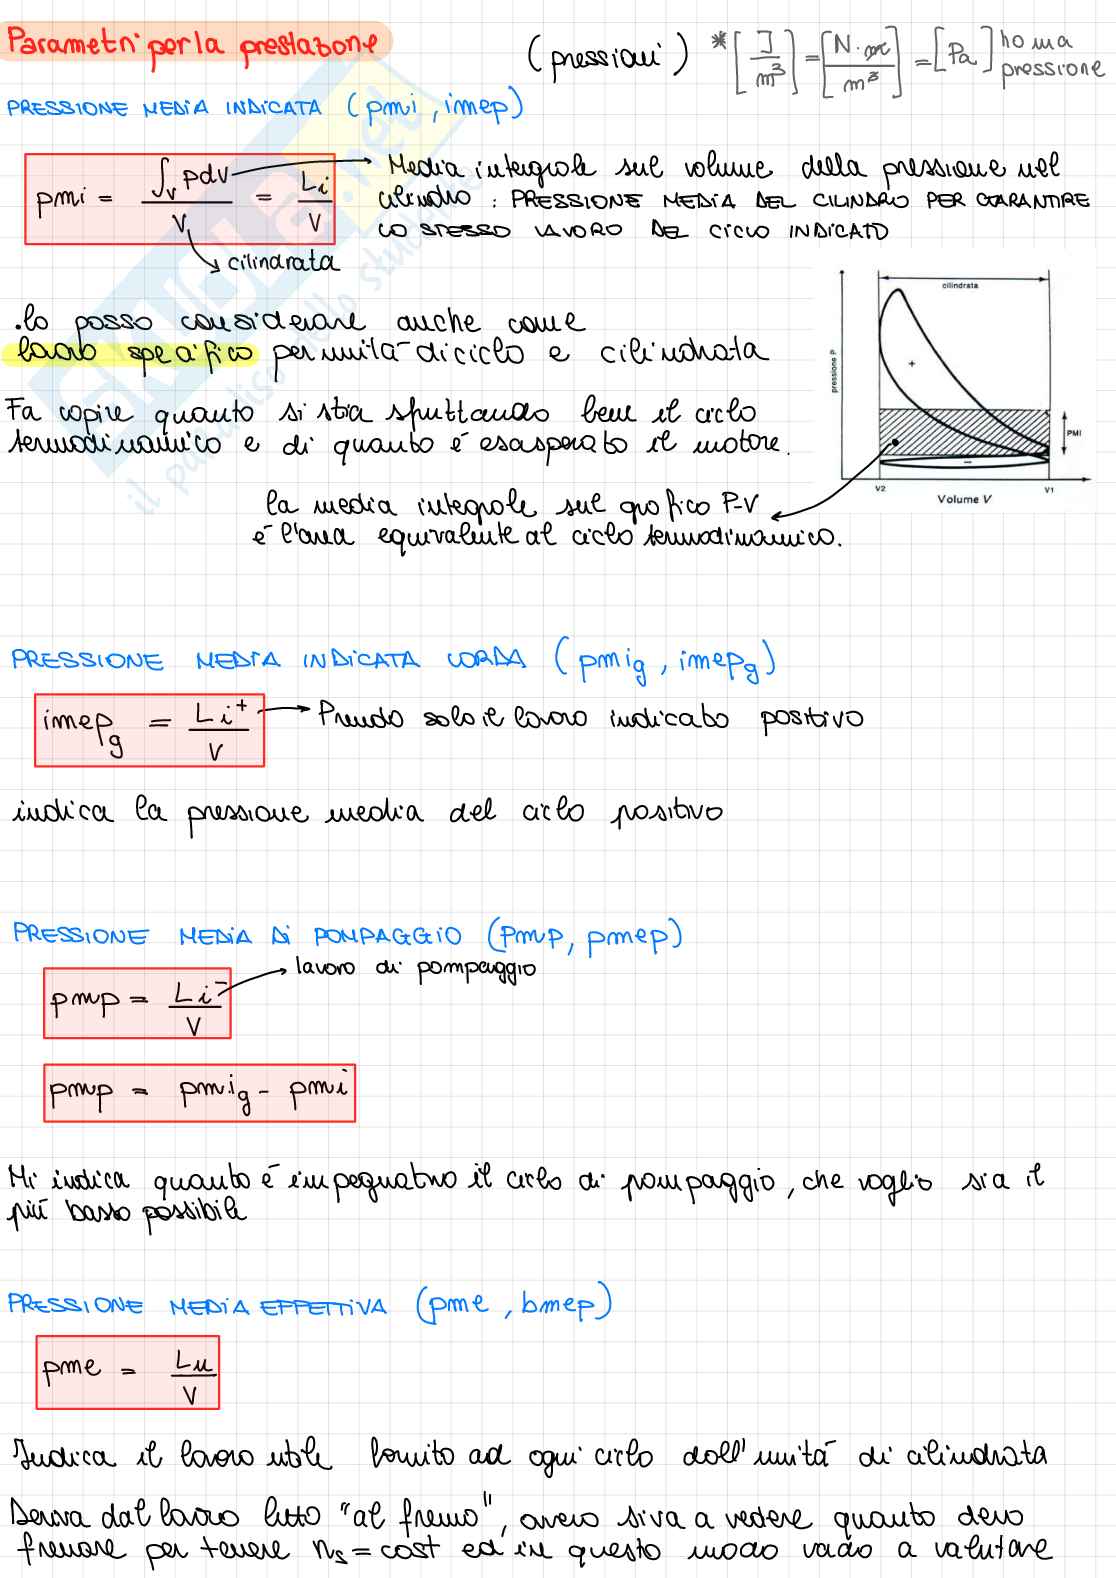 Parametri per la prestazione
(pressioni) * [J/m³] = [N·m/m³] = [Pa] ho una pressione
PRESSIONE MEDIA INDICATA (pmi, imep)
pmi = ∫ᵥ pdv / V = Li / V
Media integrale sul volume della pressione nel
cilindro : PRESSIONE MEDIA DEL CILINDRO PER GARANTIRE
LO STESSO LAVORO DEL CICLO INDICATO
cilindrata
.lo posso considerare anche come
lavoro specifico per unità di ciclo e cilindrata
Fa capire quanto si stia sfruttando bene il ciclo
termodinamico e di quanto é esasperato il motore.
cilindrata
pressione P
+
PMI
-
V2
Volume V
V1
la media integrale sul grafico P-V
é l'area equivalente al ciclo termodinamico.
PRESSIONE MEDIA INDICATA LORDA (pmig, imepg)
imepg = Li⁺ / V
Prendo solo il lavoro indicato positivo
indica la pressione media del ciclo positivo
PRESSIONE MEDIA DI POMPAGGIO (pmp, pmep)
pmp = Li⁻ / V
lavoro di pompaggio
pmp = pmig - pmi
Mi indica quanto é impegnativo il ciclo di pompaggio, che voglio sia il
più basso possibile
PRESSIONE MEDIA EFFETTIVA (pme, bmep)
pme = Lu / V
Indica il lavoro utile fornito ad ogni ciclo dall'unità di cilindrata
Deriva dal lavoro letto "al freno", ovvero si va a vedere quanto devo
frenare per tenere ns = cost ed in questo modo vado a valutare
SKUOLA.net
il paradiso dello studente